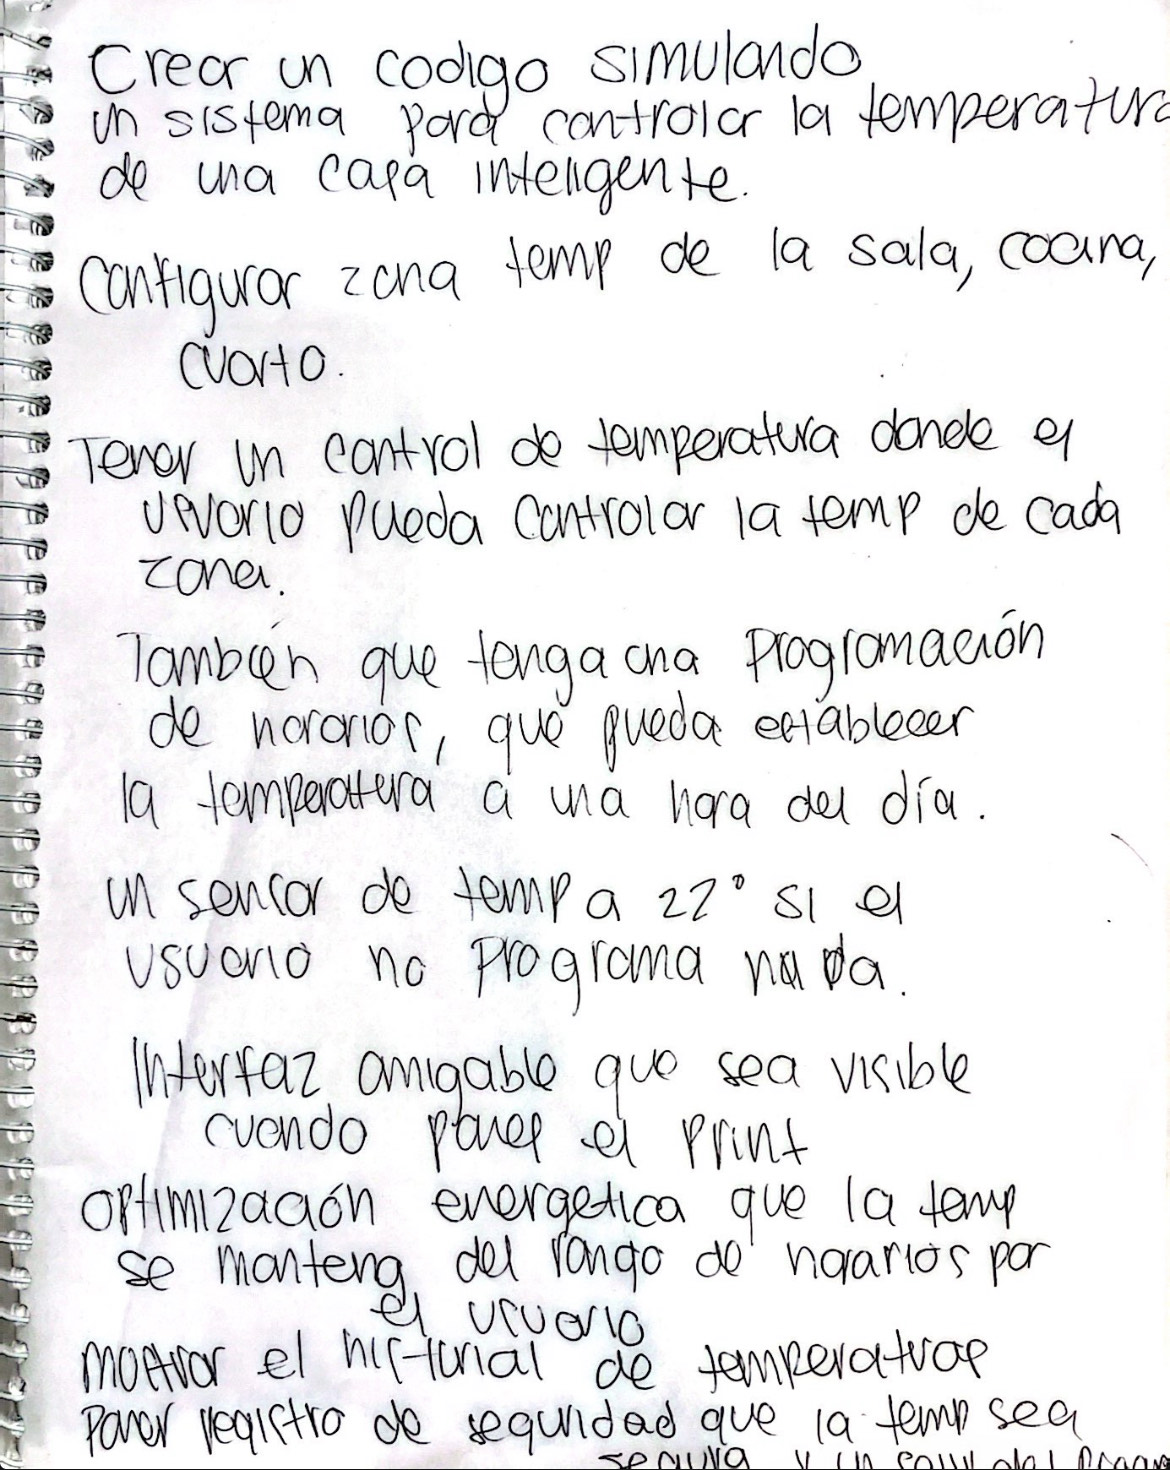 Crear un codigo simulando
un sistema para controlar la temperatura
de una casa inteligente.
Configurar zona temp de la sala, cocina,
cuarto.
Tener un control de temperatura donde el
usuario pueda controlar la temp de cada
zona.
También que tenga una programación
de horarios, que pueda establecer
la temperatura a una hora del día.
un sensor de temp a 22° si el
usuario no programa nada.
Interfaz amigable que sea visible
cuando pones el print
optimización energetica que la temp
se manteng del rango de horarios por
el usuario
mostrar el historial de temperaturas
poner registro de seguridad que la temp sea
segura y un